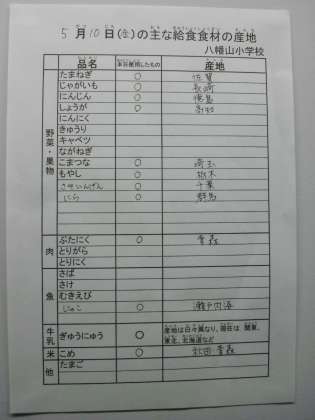 5月10日(金)の主な給食食材の産地
八幡山小学校
品名 本日使用したもの 産地
野菜・果物
たまねぎ ○ 佐賀
じゃがいも ○ 長崎
にんじん ○ 徳島
しょうが ○ 高知
にんにく
きゅうり
キャベツ
ながねぎ
こまつな ○ 埼玉
もやし ○ 栃木
さやいんげん ○ 千葉
にら ○ 群馬
肉
ぶたにく ○ 青森
とりがら
とりにく
魚
さば
さけ
むきえび
じゃこ ○ 瀬戸内海
牛乳
ぎゅうにゅう ○ 産地は日々異なり、現在は、関東、
東北、北海道など
米 こめ ○ 秋田・青森
他 たまご